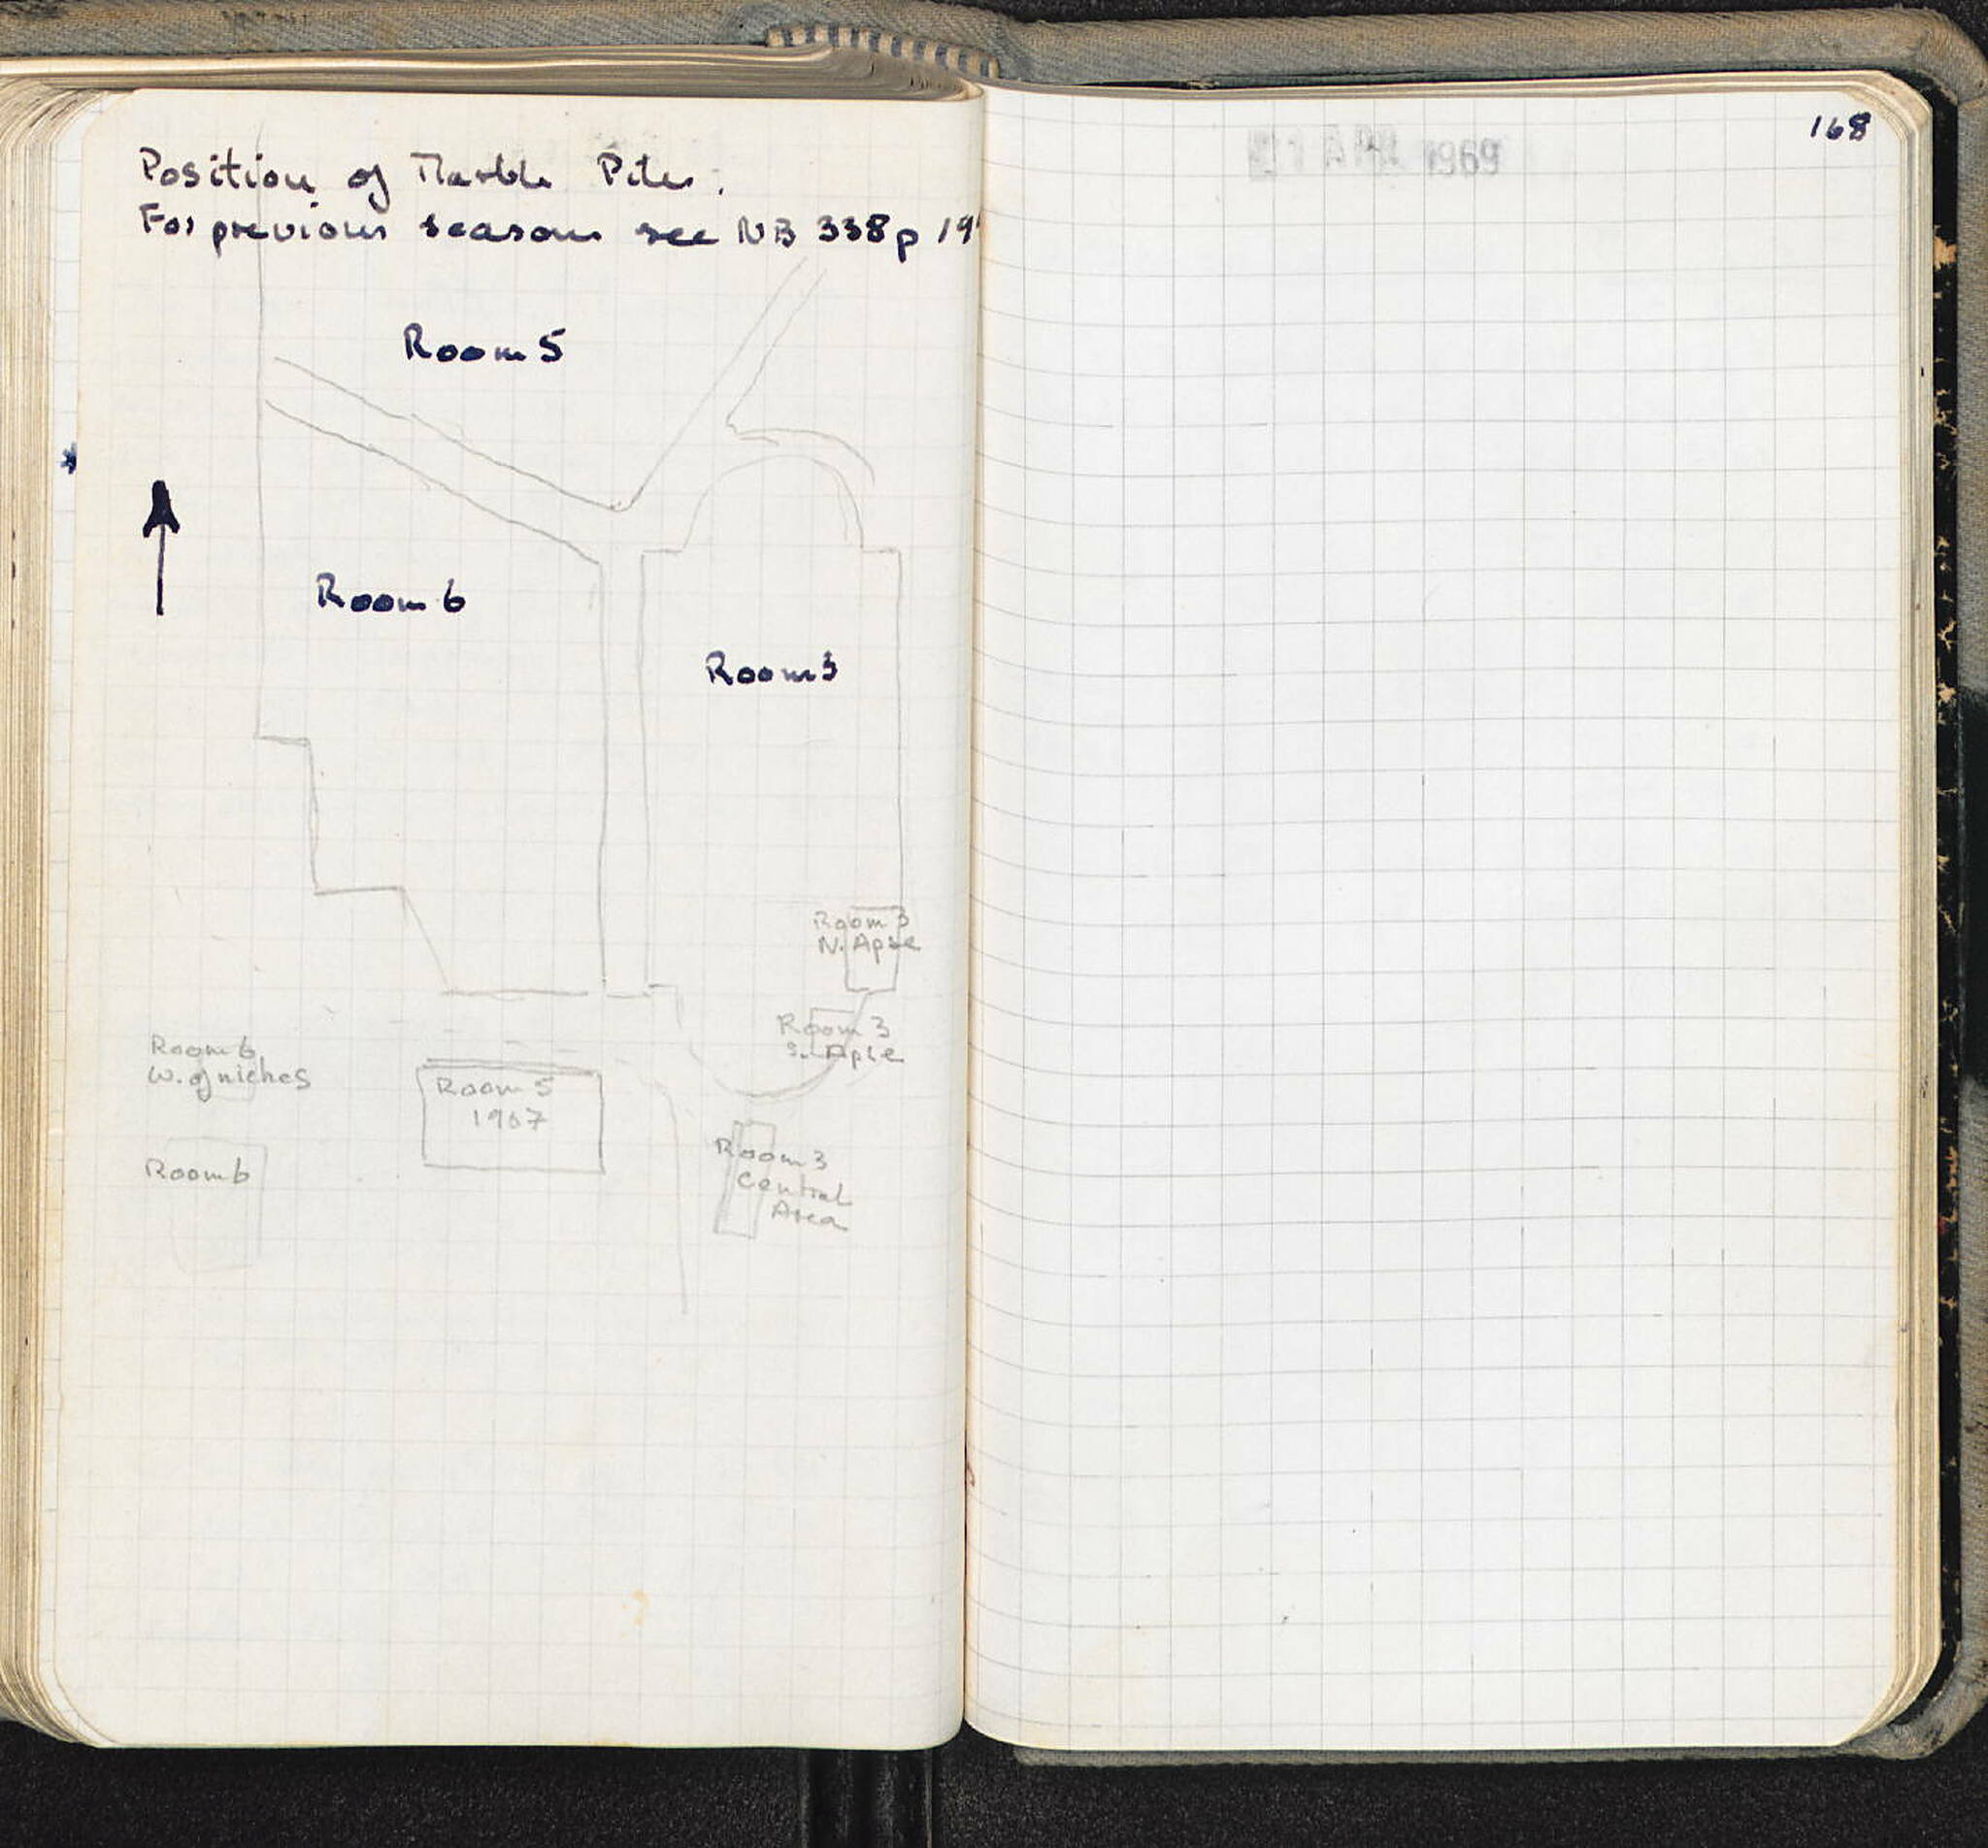 Position of Marble Piles.
For previous seasons see NB 338 p 19
Room 5
Room 6
Room 3
Room 3
N. Apse
Room 3
S. Apse
Room 6
W. of niches
Room 5
1967
Room 3
Central
Area
Room 6
168